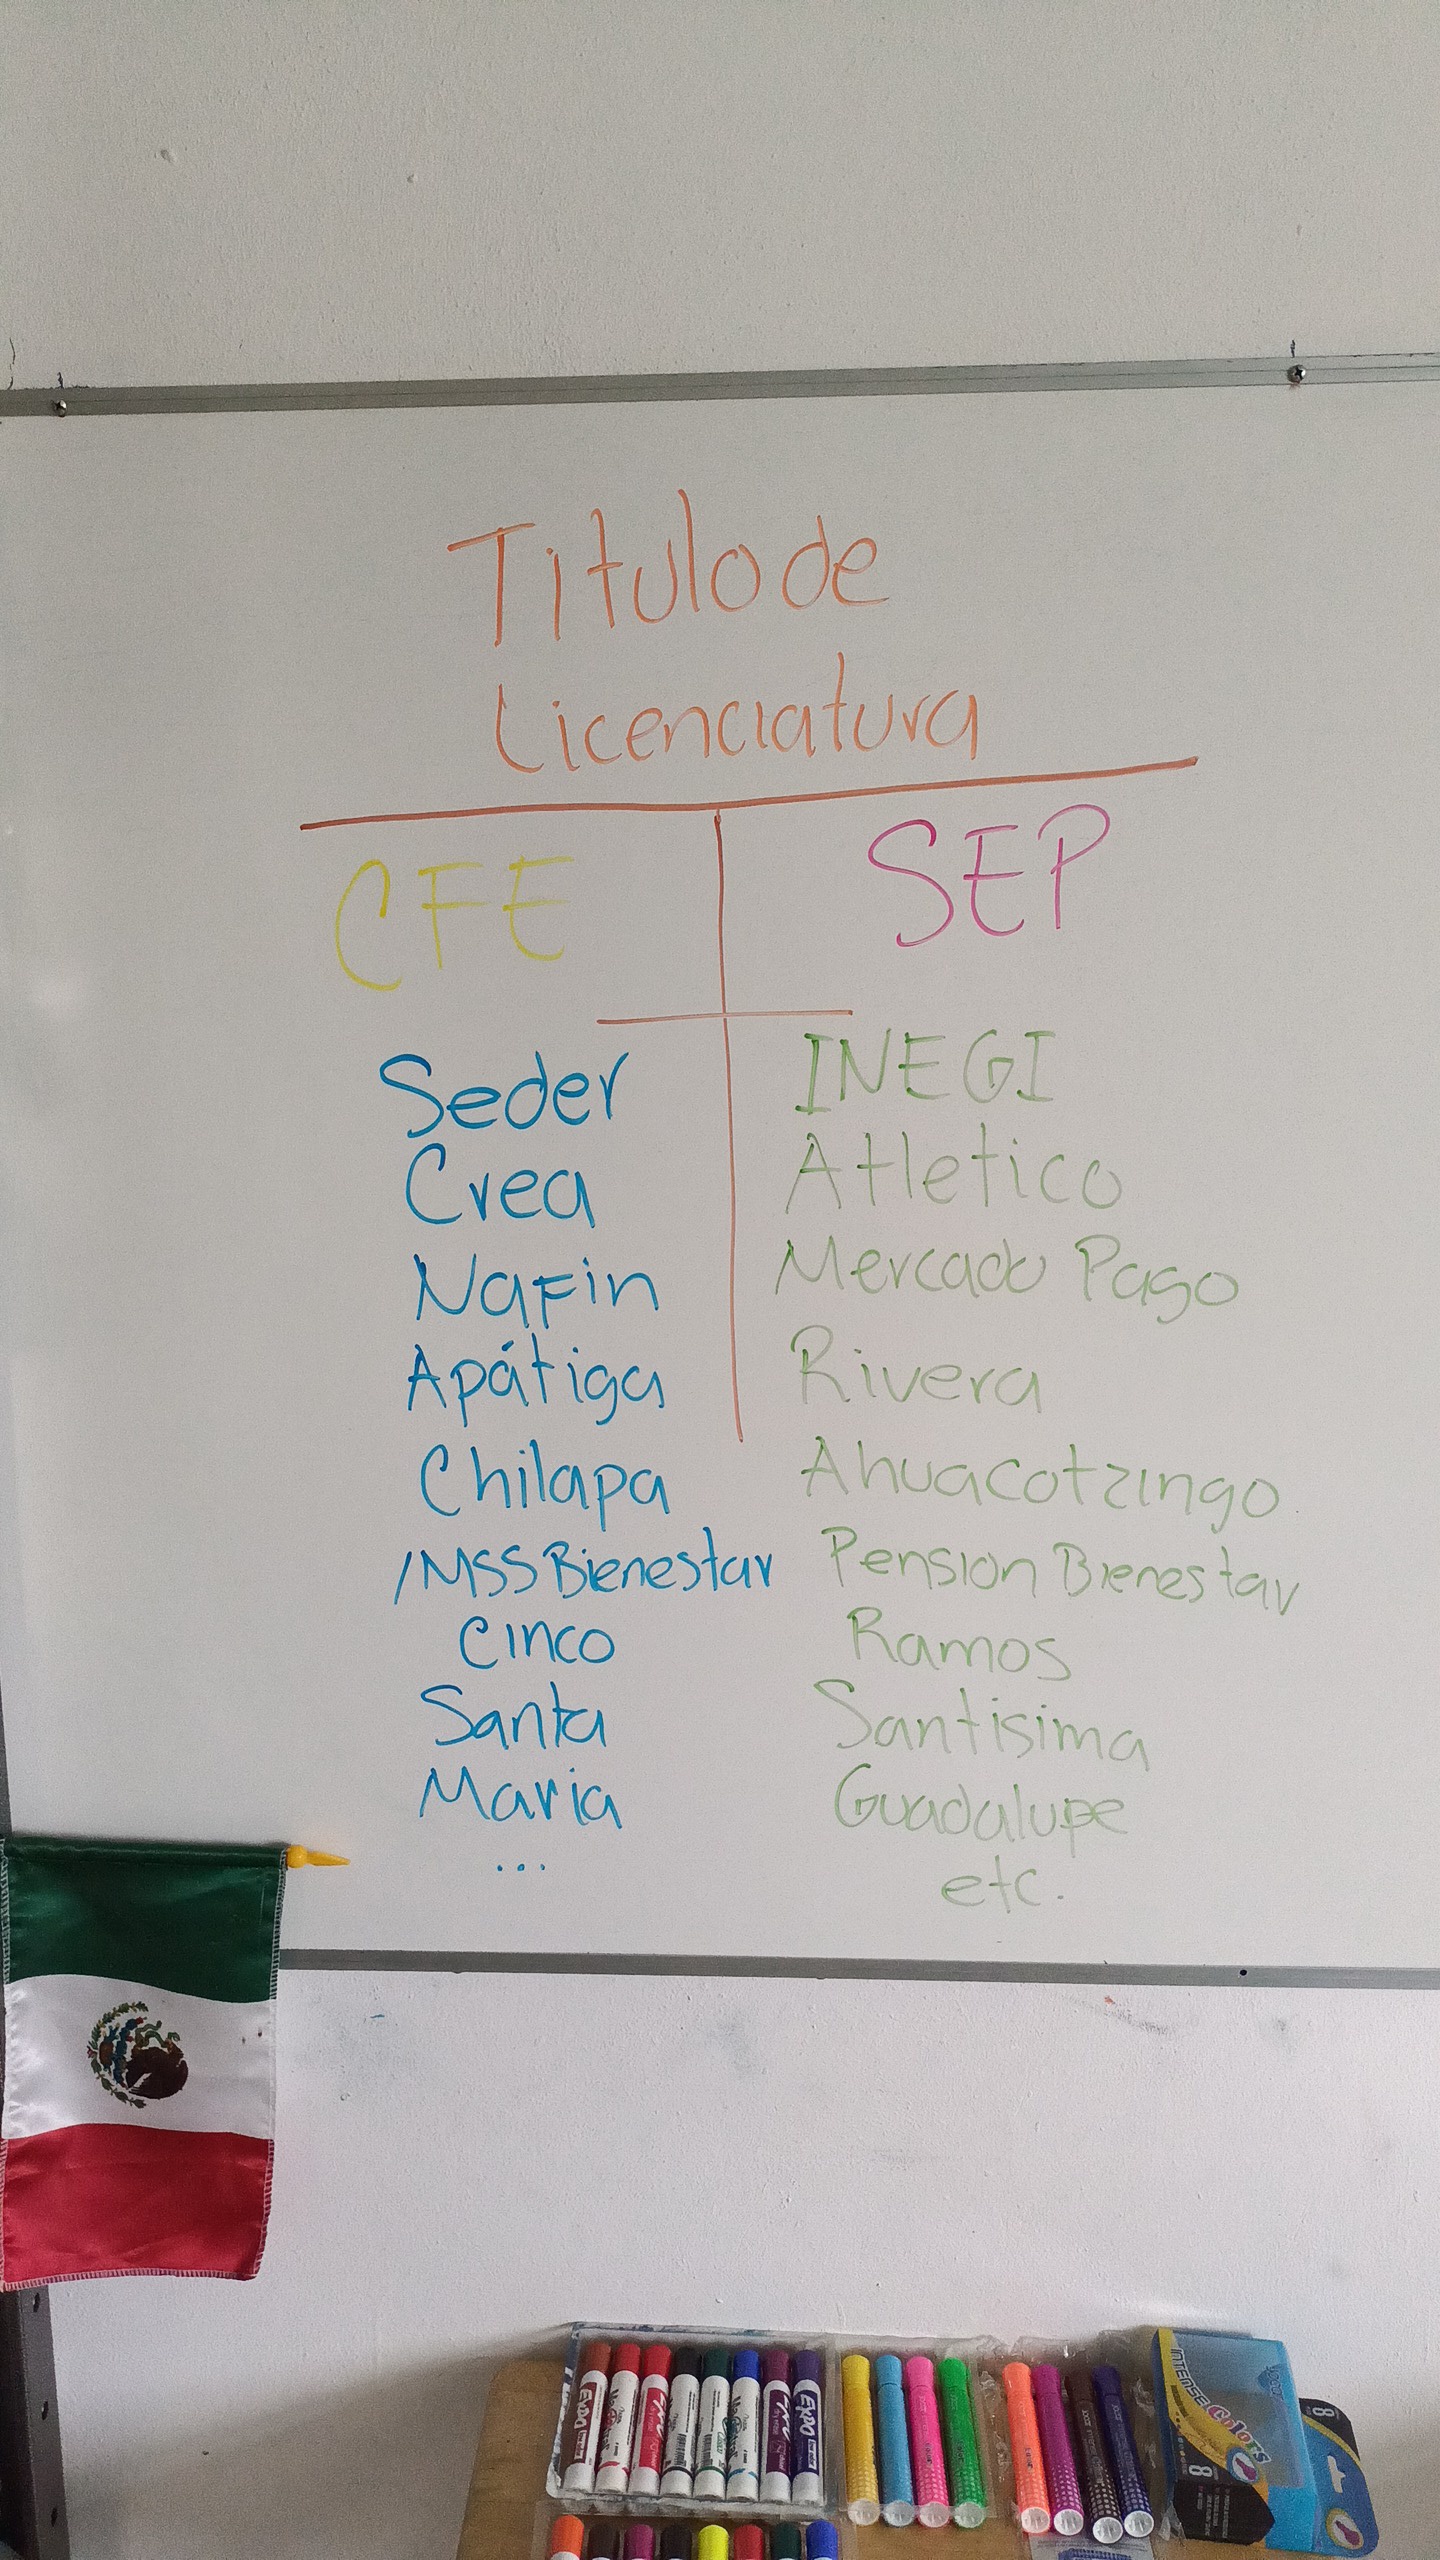 Titulo de
Licenciatura
CFE
SEP
Seder
Crea
Nafin
Apátiga
Chilapa
IMSS Bienestar
Cinco
Santa
Maria
...
INEGI
Atletico
Mercado Pago
Rivera
Ahuacotzingo
Pension Bienestar
Ramos
Santisima
Guadalupe
etc.
EXPO
EXPO
INTENSE
Colors
8
8